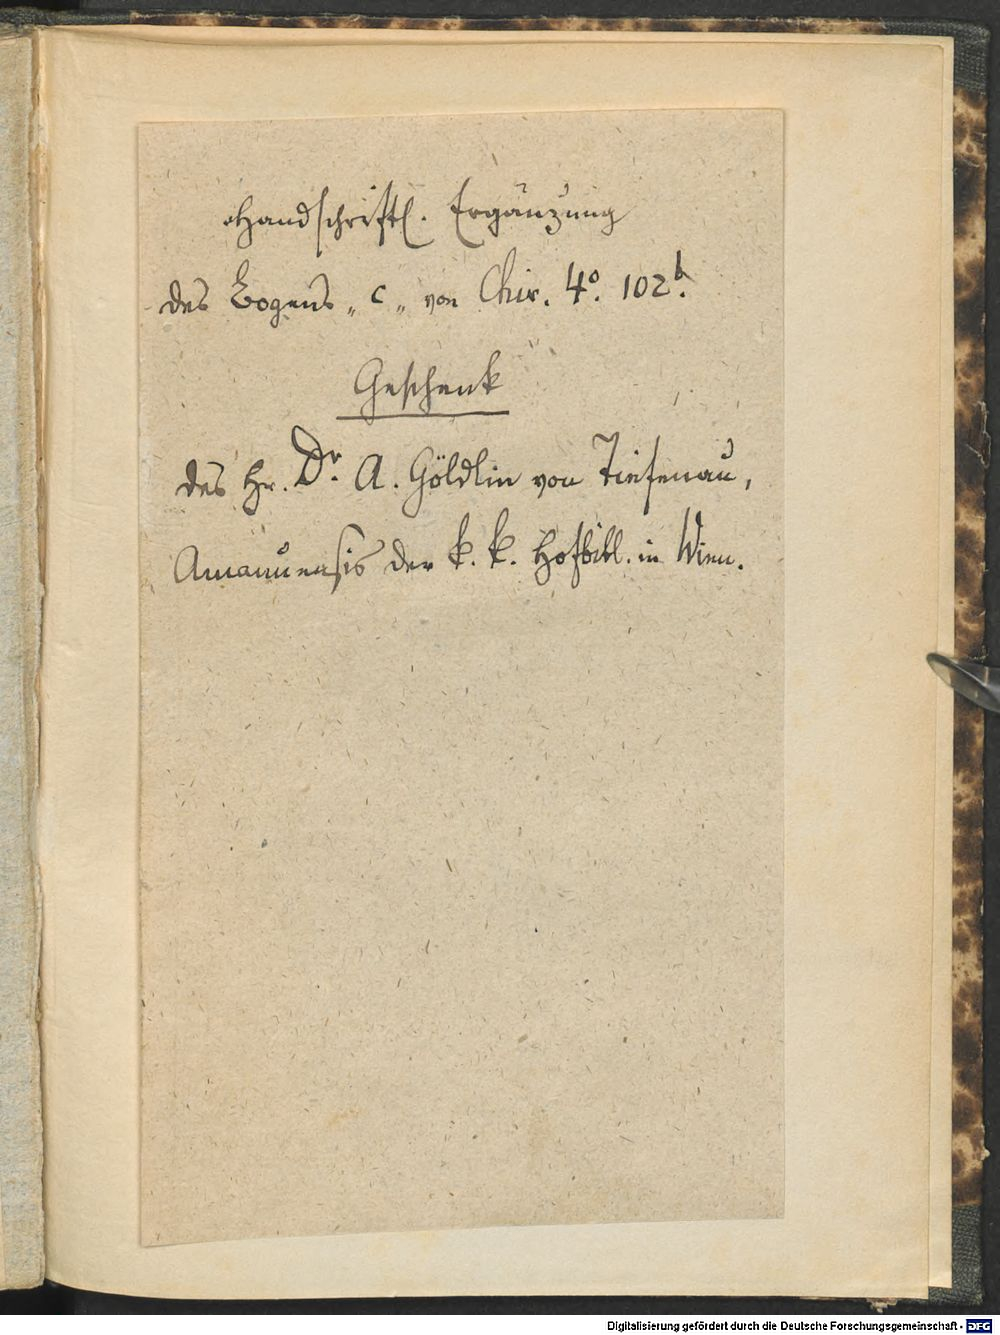 Handschriftl. Ergänzung
des Bogens „c„ von Chir. 4º. 102b.
Geschenk
des Hr. Dr. A. Göldlin von Tiefenau,
Amanuensis der k. k. Hofbibl. in Wien.
Digitalisierung gefördert durch die Deutsche Forschungsgemeinschaft - DFG